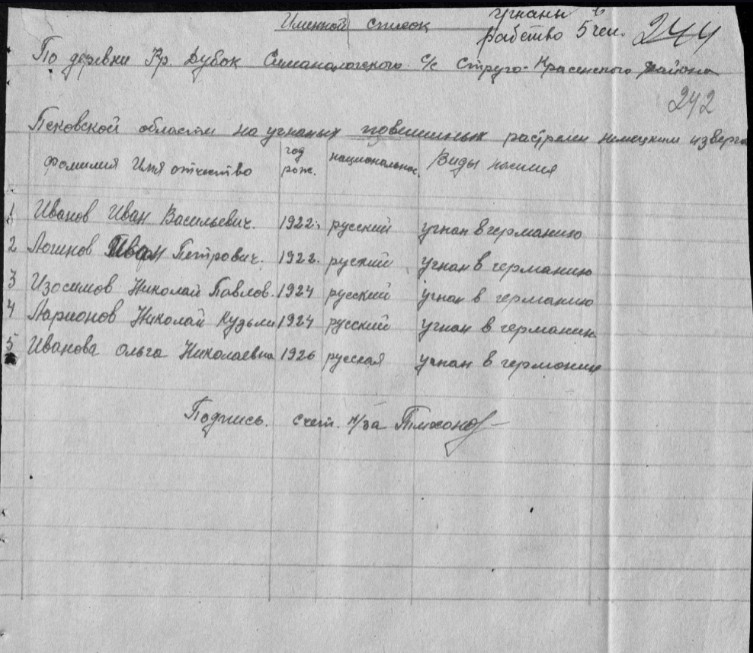 Именной список
угнаны в
рабство 5 чел.
244
По деревни Кр. Дубок Симанологского с/с Струго-Красенского района
242
Псковской области на угнаных повешиных растрелы немецким изверга
фамилия Имя отчество год рож. национальнос. Виды насилия
1 Иванов Иван Васильевич. 1922г. русский угнан в германию
2 Логинов Иван Петрович. 1922. руский угнан в германию
3 Изосимов Николай Павлов. 1924 русский угнан в германию
4 Ларионов Николай Кузьми 1924 русский угнан в германию
5 Иванова Ольга Николаевна 1926 русская угнан в германию
Подпись. счет. к/за Тихонов